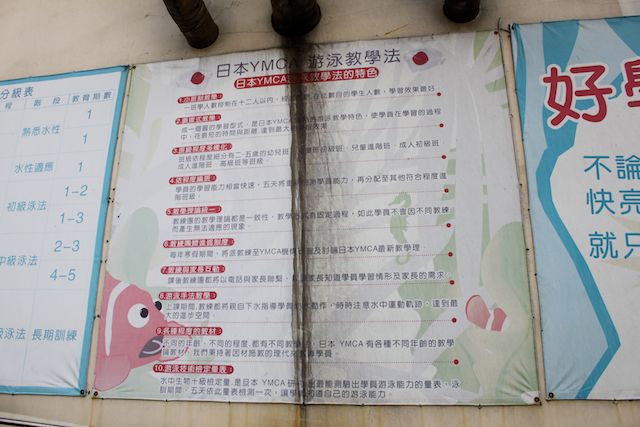 分級表
程 階段 教育期數
熟悉水性 1
1
水性適應 1
1-2
初級泳法 1-3
2-3
中級泳法 4-5
級泳法 長期訓練
日本YMCA 游泳教學法
日本YMCA游泳教學法的特色
一班學人數控制在十二人以內，
此數目的學生人數，學習效果最好。
成一個圓的學習型式，是日本YMCA
教學特色，使學員在學習的過程
中，在最短的時間與距離，達到最大
效果。
班級依程度細分有二-五歲的幼兒班
初級班、兒童進階班、成人初級班、
成人進階班、高級班等班級。
學員的學習能力相當快速，五天將
學員能力，再分配至其他符合程度進
階班級。
5.教學理論統一
教練團的教學理論都是一致性，教學
有固定過程，如此學員不會因不同教練
而產生無法適應的現象。
每年寒假期間，將派教練至YMCA機
習及討論日本YMCA最新教學理。
7.教練與家長互動
課後教練都將以電話與家長聯繫，
家長知道學員學習情形及家長的需求。
上課期間，教練都將親自下水指導學員
動作，時時注意水中運動軌跡，達到最
大的進步空間。
9.各種程度的教材
不同的年齡，不同的程度，都有不同教學
日本 YMCA 有各種不同年齡的教學
論教材，我們秉持著因材施教的理代
專學員。
10.游泳技術檢定量表:
水中生物十級檢定量，是日本 YMCA 研
出最能測驗出學員游泳能力的量表，泳
訓期間，五天依此量表檢測一次，讓學
知道自己的游泳能力。
好
不論
快亮
就只